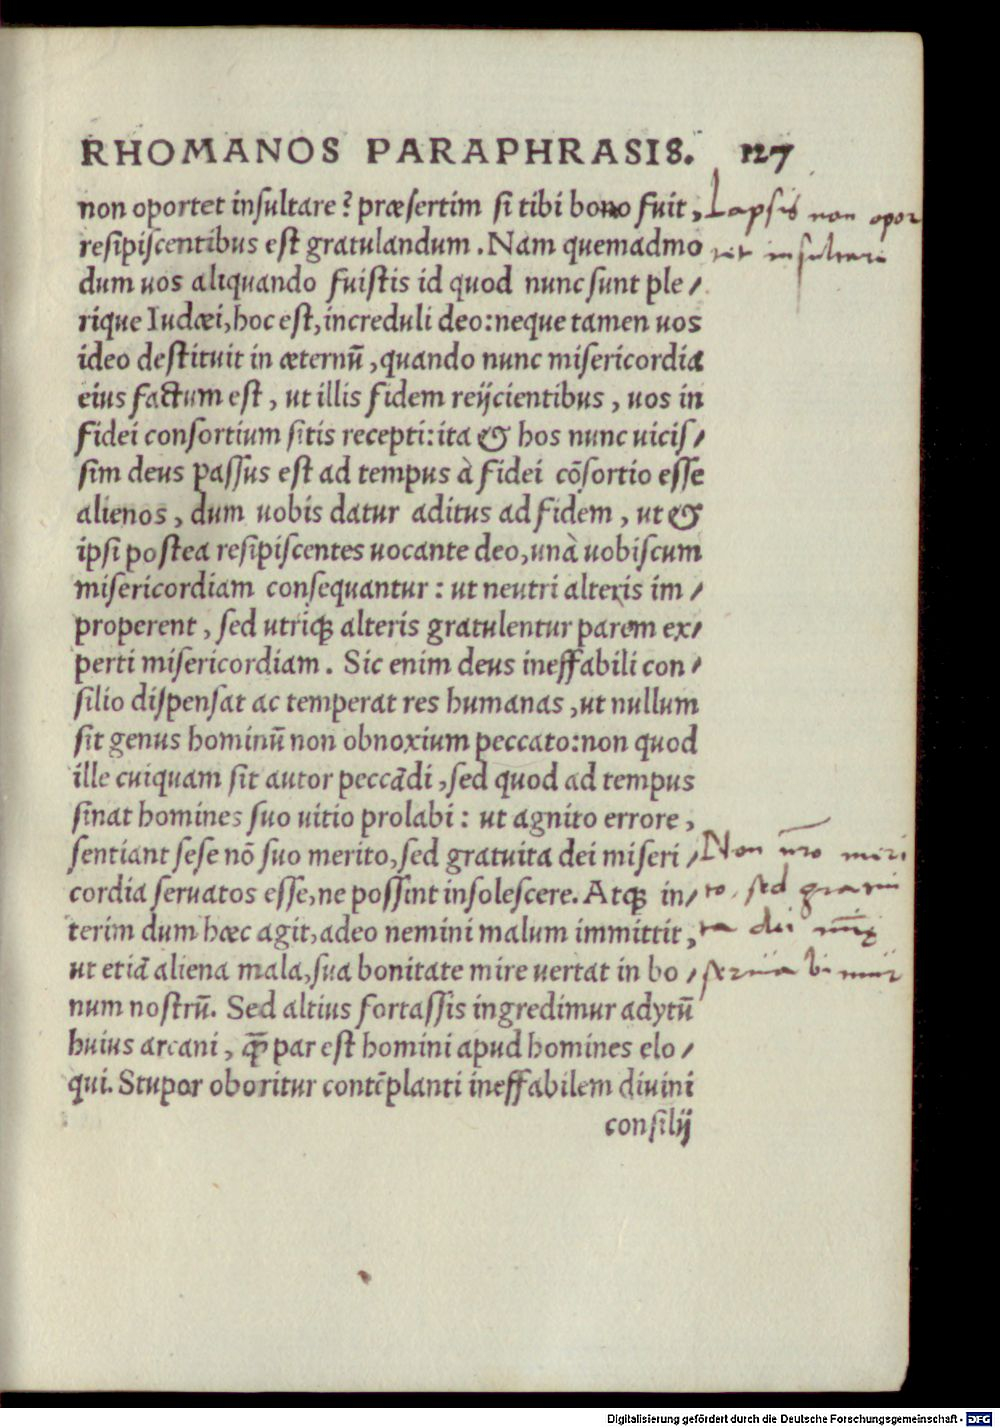 RHOMANOS PARAPHRASIS. 127
non oportet insultare? præsertim si tibi bono fuit,
resipiscentibus est gratulandum. Nam quemadmo
dum uos aliquando fuistis id quod nunc sunt ple/
rique Iudæi, hoc est, increduli deo: neque tamen uos
ideo destituit in æternū, quando nunc misericordia
eius factum est, ut illis fidem reijcientibus, uos in
fidei consortium sitis recepti: ita & hos nunc uicis/
sim deus passus est ad tempus à fidei cōsortio esse
alienos, dum uobis datur aditus ad fidem, ut &
ipsi postea resipiscentes uocante deo, unà uobiscum
misericordiam consequantur: ut neutri alteris im/
properent, sed utriqꝫ alteris gratulentur parem ex/
perti misericordiam. Sic enim deus ineffabili con/
silio dispensat ac temperat res humanas, ut nullum
sit genus hominū non obnoxium peccato: non quod
ille cuiquam sit autor peccādi, sed quod ad tempus
sinat homines suo uitio prolabi: ut agnito errore,
sentiant sese nō suo merito, sed gratuita dei miseri/
cordia seruatos esse, ne possint insolescere. Atqꝫ in/
terim dum hæc agit, adeo nemini malum immittit,
ut etiā aliena mala, sua bonitate mire uertat in bo/
num nostrū. Sed altius fortassis ingredimur adytū
huius arcani, q̄ par est homini apud homines elo/
qui. Stupor oboritur contēplanti ineffabilem diuini
consilij
Lapsis non opor
tet insultare
Non nr̄o meri
to, sed gratui
ta dei
Digitalisierung gefördert durch die Deutsche Forschungsgemeinschaft - DFG